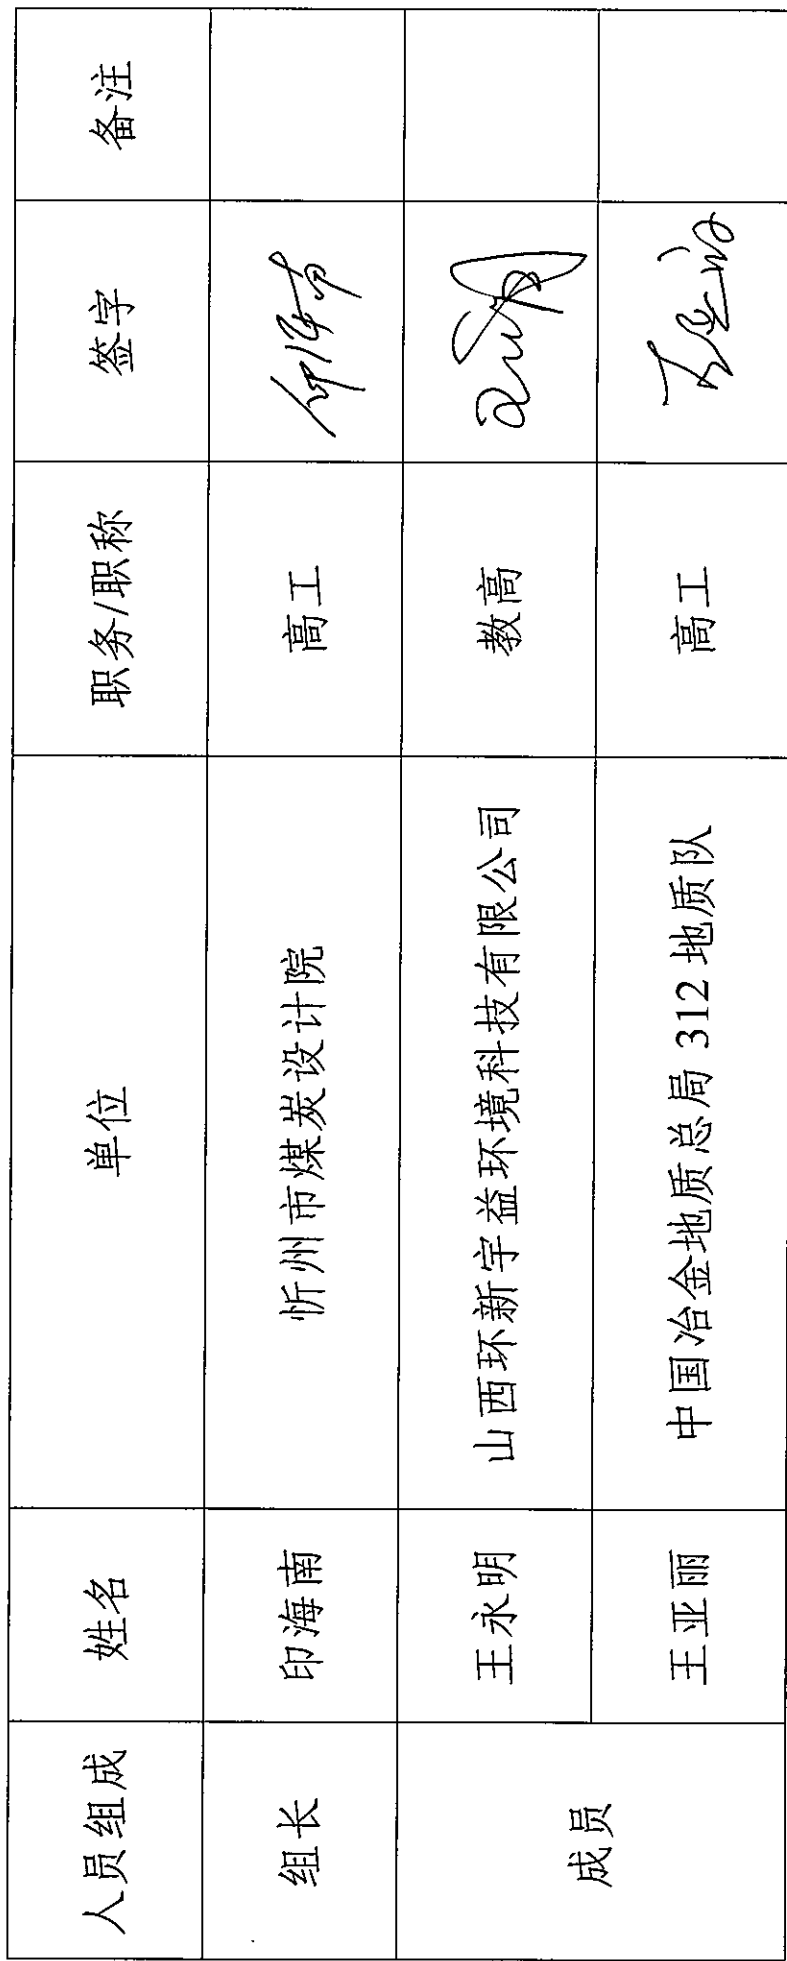 人员组成 姓名 单位 职务/职称 签字 备注
组长 印海南 忻州市煤炭设计院 高工 印海南
成员 王永明 山西环新宇益环境科技有限公司 教高
王亚丽 中国冶金地质总局 312 地质队 高工